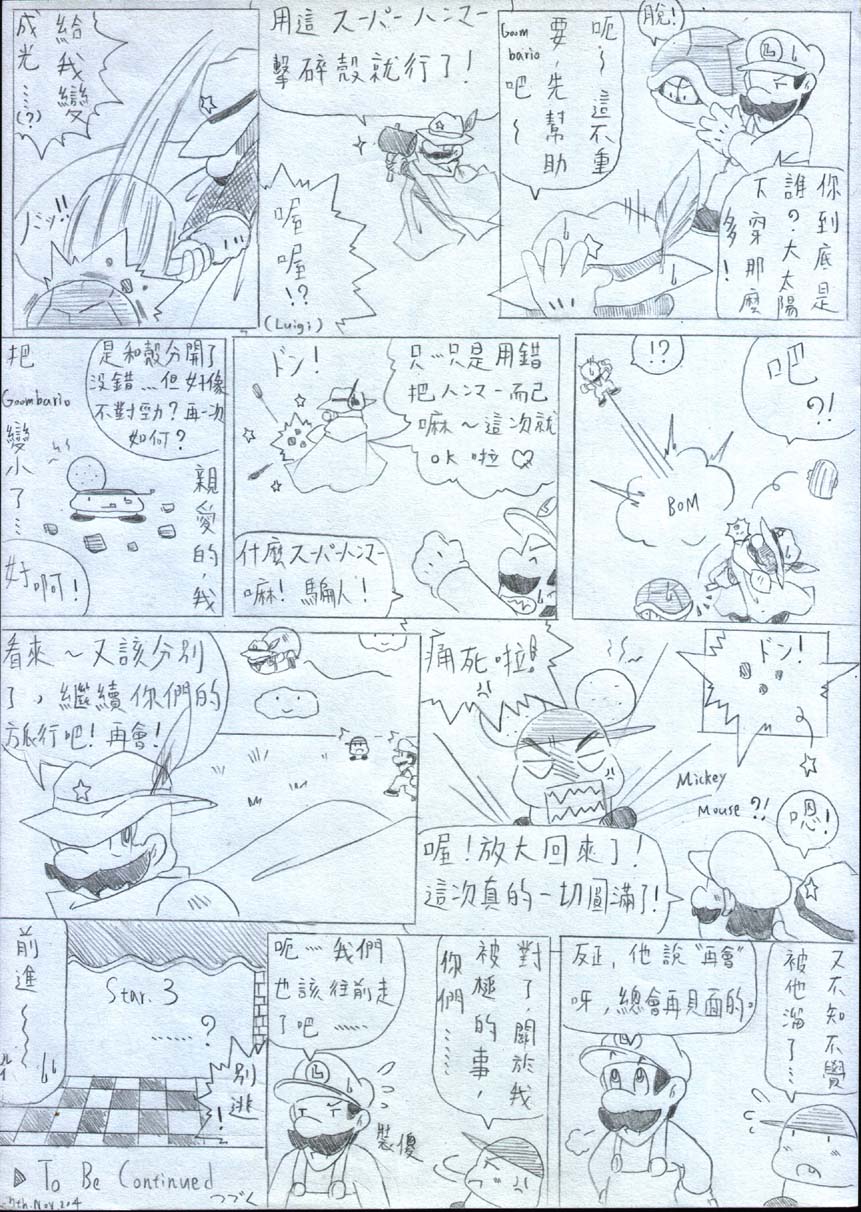 脫!
呃～這不重
要,先幫助
Goom
bario
吧～
你到底是
誰の?大太陽
下穿那麼
多!
用這スーパーハンマー
擊碎殼就行了!
喔
喔
!?
(Luigi)
給我變
成光……(?)
バッ!!
吧
?!
!?
BOM
只…只是用錯
把ハンマー而已
嘛～這次就
OK啦♡
ドン!
什麼スーパーハンマー
嘛!騙人!
是和殼分開了
沒錯…但好像
不對勁?再一次
如何?
親愛的,我
把
Goombario
變小了…
好啊!
ドン!
嗯!
Mickey
Mouse?!
痛死啦!!
喔!放大回來了!
這次真的一切圓滿了!
看來～又該分別
了,繼續你們的
旅行吧!再會!
又不知不覺
被他溜了…
反正,他說"再會"
呀,總會再見面的。
對了,關於我
被極的事,
你們……
呃…我們
也該往前走
了吧……
裝傻
Star.3
……?
別逃
!
前進～～～
ルイ
To Be Continued
つづく
7th.Nov.204